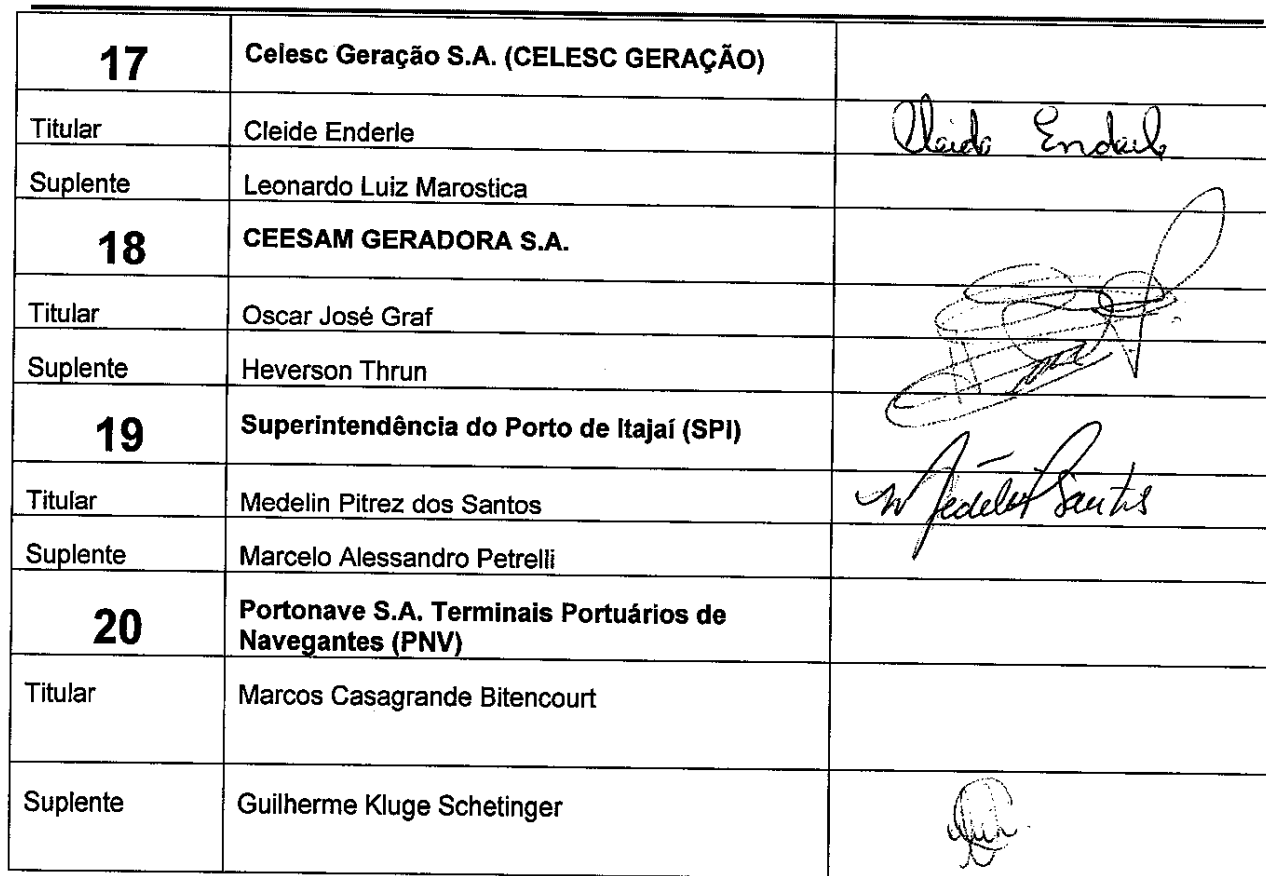 17 Celesc Geração S.A. (CELESC GERAÇÃO)
Titular Cleide Enderle Cleide Enderle
Suplente Leonardo Luiz Marostica
18 CEESAM GERADORA S.A.
Titular Oscar José Graf
Suplente Heverson Thrun
19 Superintendência do Porto de Itajaí (SPI)
Titular Medelin Pitrez dos Santos Medelin P Santos
Suplente Marcelo Alessandro Petrelli
20 Portonave S.A. Terminais Portuários de
Navegantes (PNV)
Titular Marcos Casagrande Bitencourt
Suplente Guilherme Kluge Schetinger